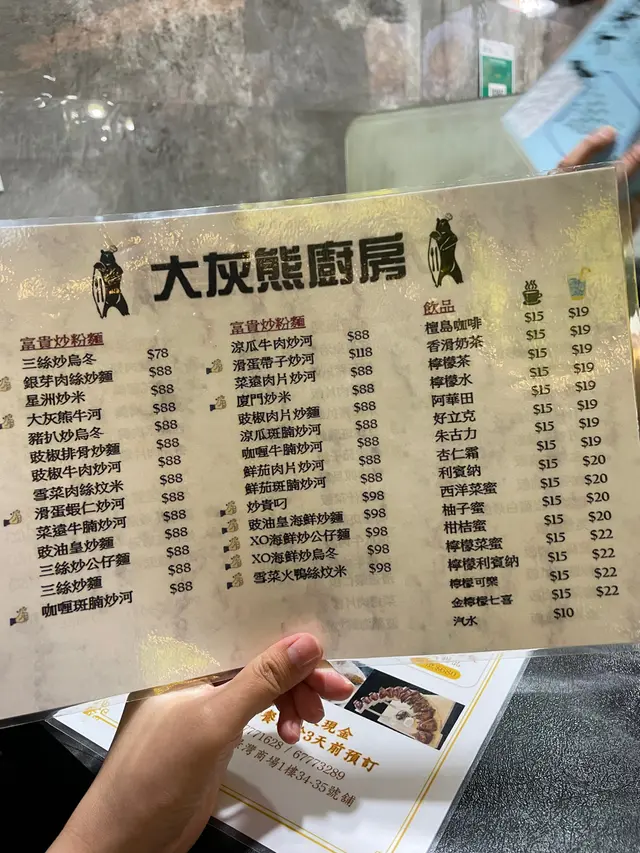 大灰熊廚房
富貴炒粉麵
三絲炒烏冬 $78
銀芽肉絲炒麵 $88
星洲炒米 $88
大灰熊牛河 $88
豬扒炒烏冬 $88
豉椒排骨炒麵 $88
豉椒牛肉炒河 $88
雪菜肉絲炆米 $88
滑蛋蝦仁炒河 $88
菜遠牛腩炒河 $88
豉油皇炒麵 $88
三絲炒公仔麵 $88
三絲炒麵 $88
咖喱斑腩炒河 $88
富貴炒粉麵
涼瓜牛肉炒河 $88
滑蛋帶子炒河 $118
菜遠肉片炒河 $88
廈門炒米 $88
豉椒肉片炒麵 $88
涼瓜斑腩炒河 $88
咖喱牛腩炒河 $88
鮮茄肉片炒河 $88
鮮茄斑腩炒河 $88
炒貴刁 $98
豉油皇海鮮炒麵 $98
XO海鮮炒公仔麵 $98
XO海鮮炒烏冬 $98
雪菜火鴨絲炆米 $98
飲品
檀島咖啡 $15 $19
香滑奶茶 $15 $19
檸檬茶 $15 $19
檸檬水 $15 $19
阿華田 $15 $19
好立克 $15 $19
朱古力 $15 $19
杏仁霜 $15 $19
利賓納 $15 $20
西洋菜蜜 $15 $20
柚子蜜 $15 $20
柑桔蜜 $15 $20
檸檬菜蜜 $15 $22
檸檬利賓納 $15 $22
檸檬可樂 $15 $22
金檸檬七喜 $15 $22
汽水 $10
現金
3天前預訂
771628 / 67773289
灣商場1樓34-35號舖